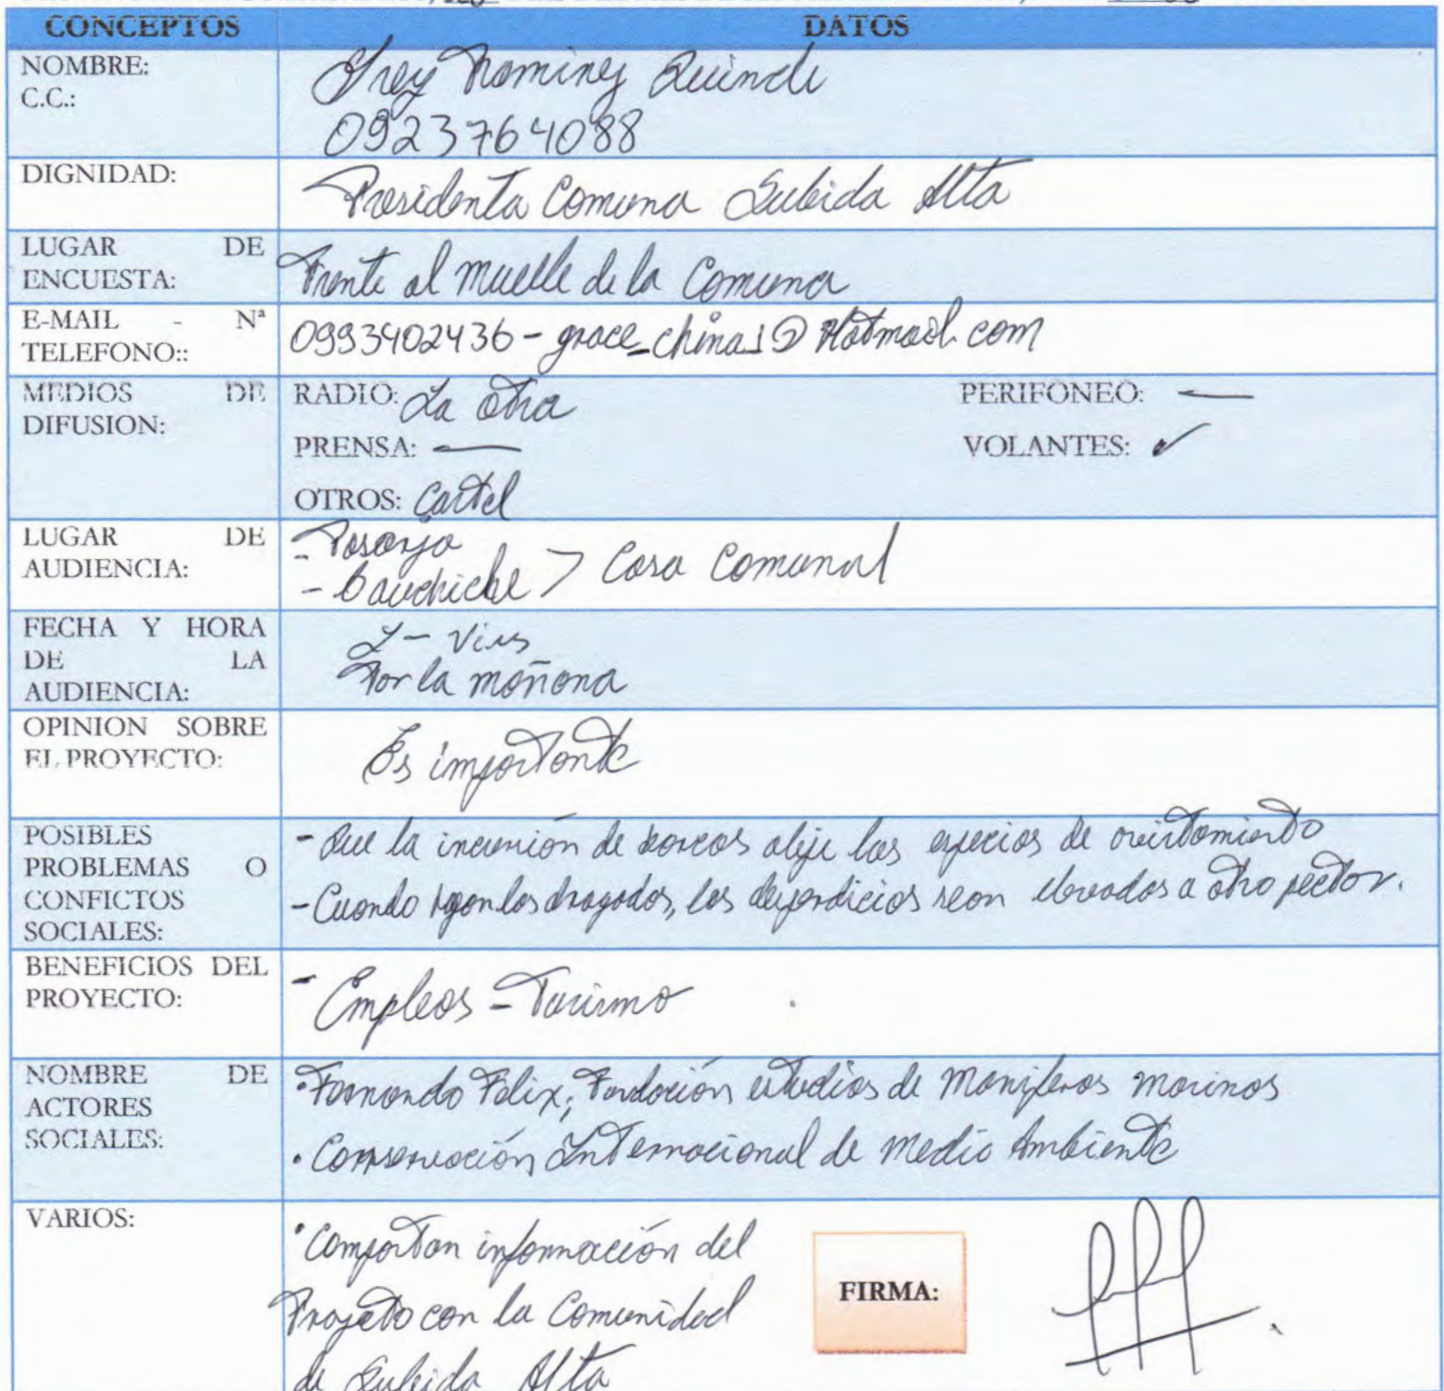 CONCEPTOS DATOS
NOMBRE: Grey Quinde
C.C.: 0923764088
DIGNIDAD: Presidenta Comuna Subida Alta
LUGAR DE ENCUESTA: Frente al muelle de la Comuna
E-MAIL - Nª TELEFONO:: 0993402436 - grace_china1@Hotmail.com
MEDIOS DE DIFUSION: RADIO: La otra PERIFONEO: —
PRENSA: — VOLANTES: ✓
OTROS: Cartel
LUGAR DE AUDIENCIA: - Posorja
- Cauchiche > Casa Comunal
FECHA Y HORA DE LA AUDIENCIA: L - Vies
Por la mañana
OPINION SOBRE EL PROYECTO: Es importante
POSIBLES PROBLEMAS O CONFICTOS SOCIALES: - Que la incursión de barcos aleje las especies de avistamiento
- Cuando sean los dragados, los desperdicios sean llevados a otro sector.
BENEFICIOS DEL PROYECTO: - Empleos - Turismo
NOMBRE DE ACTORES SOCIALES: • Fernando Felix; Fundación estudios de Mamiferos marinos
• Conservación Internacional de Medio Ambiente
VARIOS: • Compartan información del
Proyecto con la Comunidad
de Subida Alta
FIRMA: